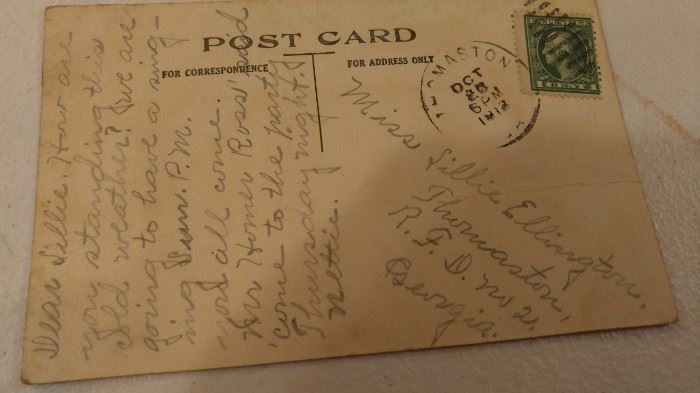 POST CARD
FOR CORRESPONDENCE
FOR ADDRESS ONLY
THOMASTON
OCT
U.S. POSTAGE
1 CENT 1
Dear Lillie. How are
you standing this
cold weather? We are
going to have a sing-
ing Sun. P.M.
you all come.
Mr Homer Ross' and
come to the party
Thursday night.
Nettie.
Miss Lillie Ellington,
Thomaston,
R.F.D. No 2,
Georgia.